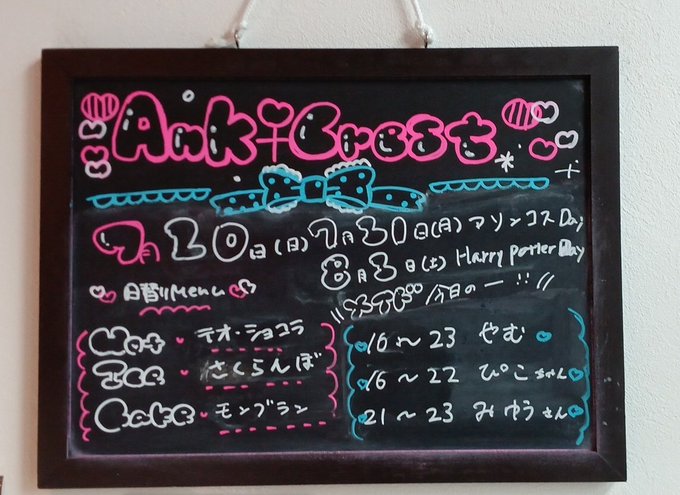 Ank♀Crest
7月20日(日)
7月30日(月)マソンコスDay
8月3日(土) Harry Potter Day
日替りMenu
Hot・テオ・ショコラ
Ice・さくらんぼ
Cake・モンブラン
メイド 今日のー!!
16〜23 やむ
16〜22 ぴこちゃん
21〜23 みゆうさん